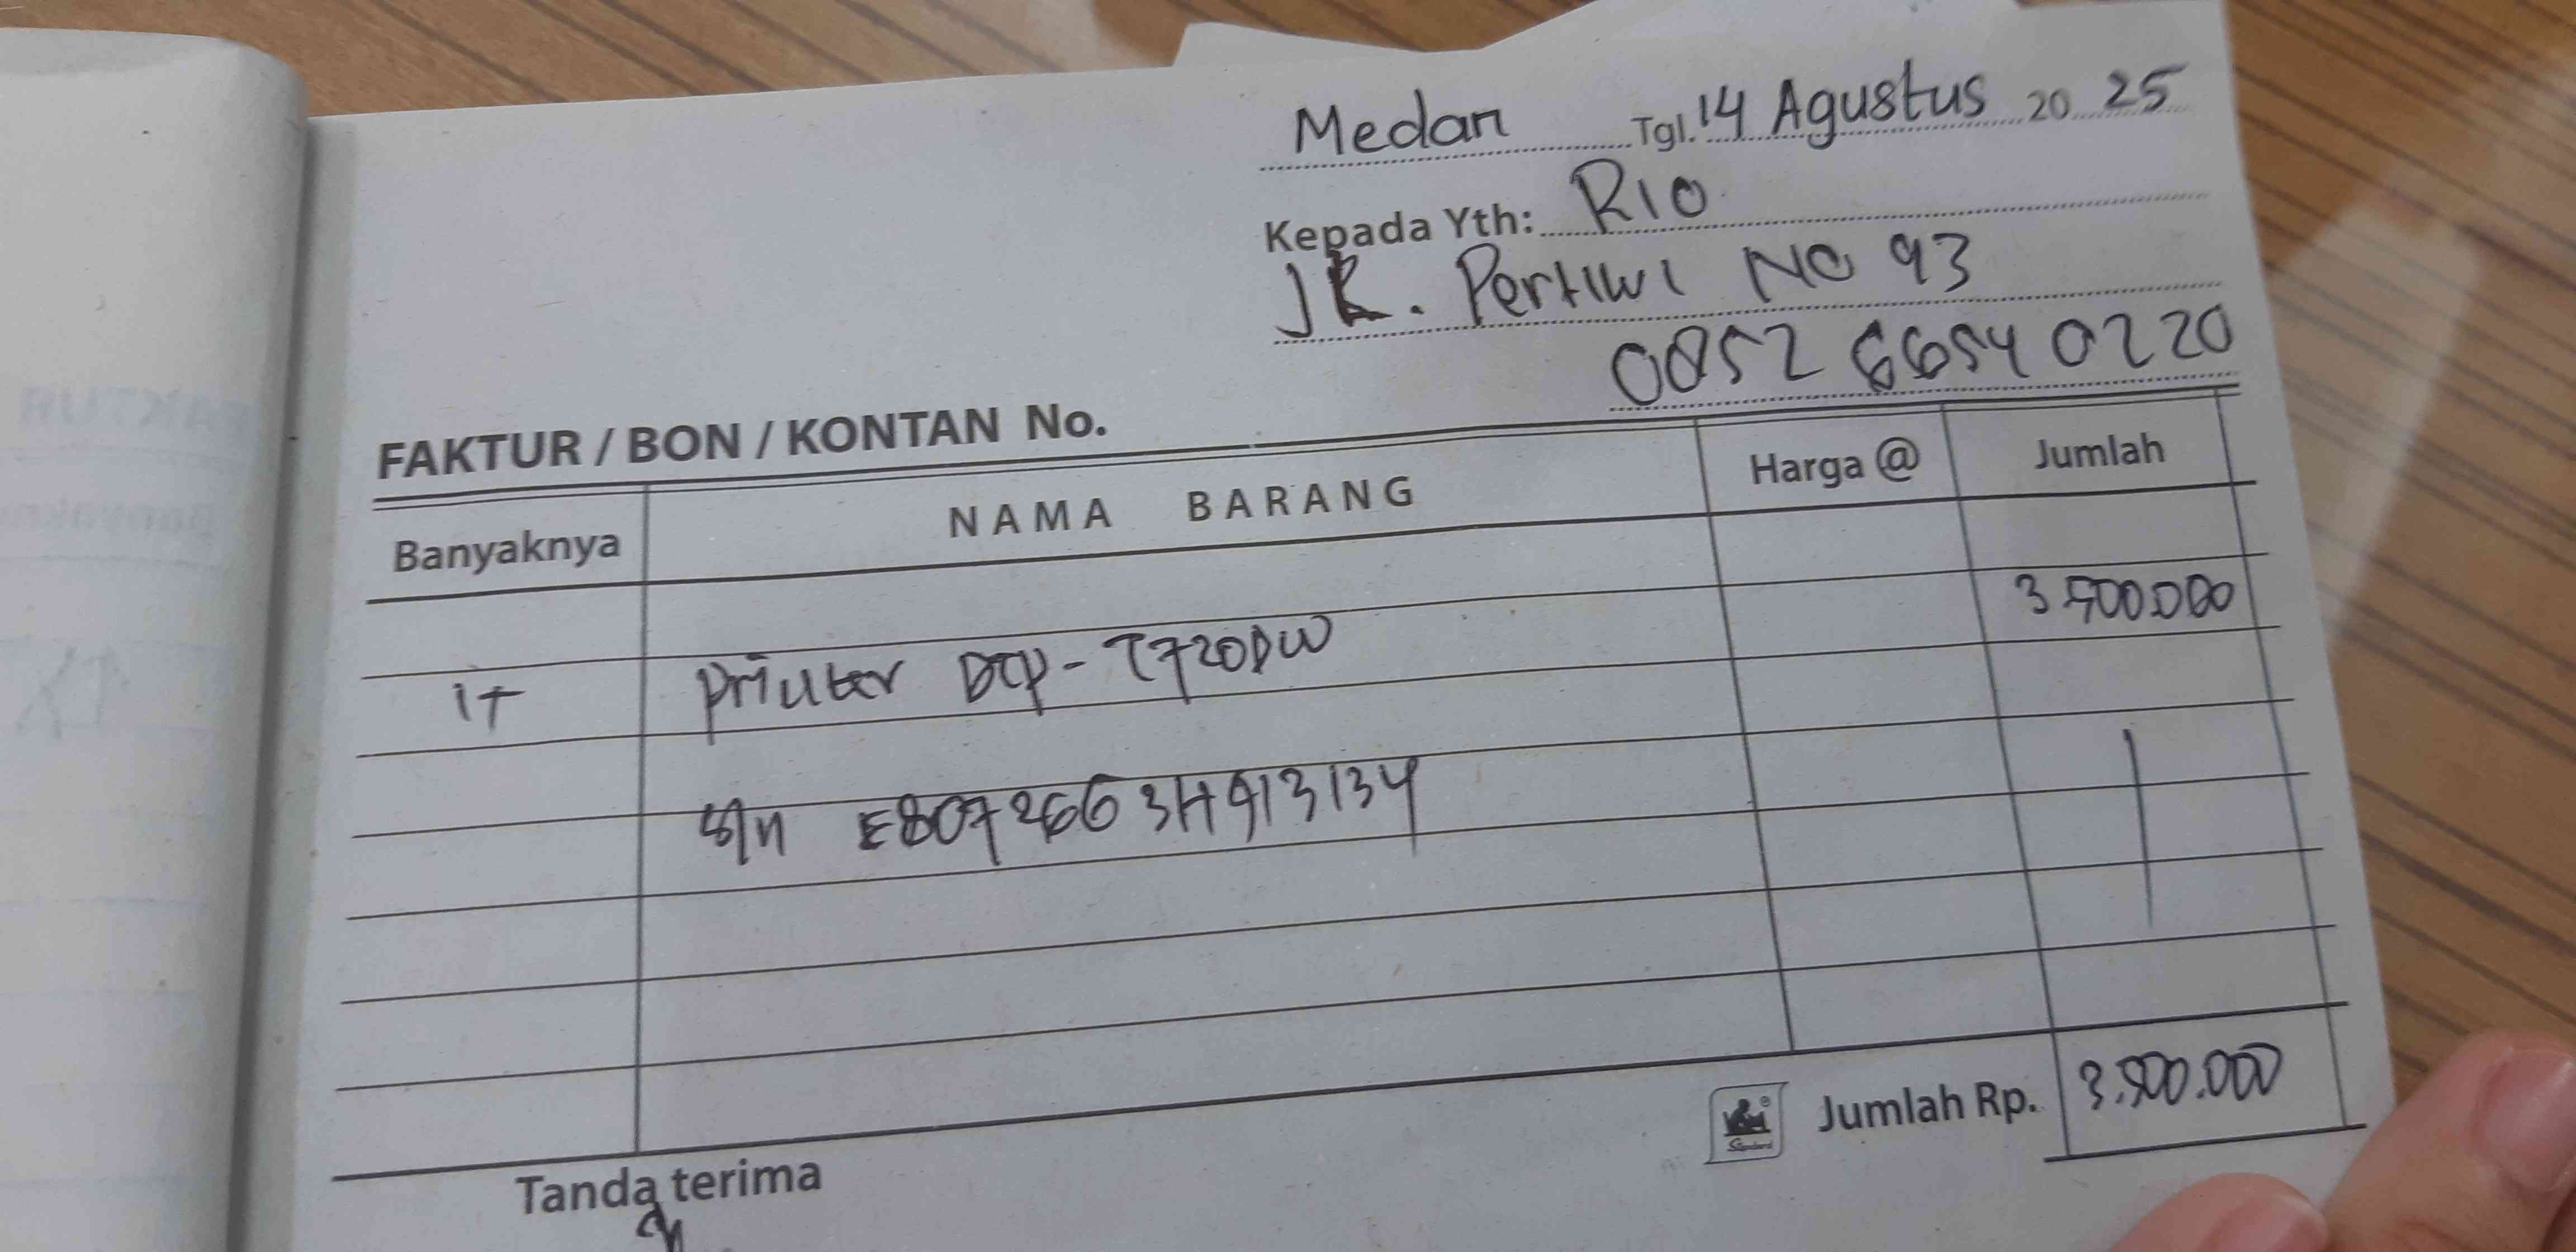 Medan Tgl. 14 Agustus 20 25
Kepada Yth: RIO
JL. Pertiwi NO 93
0852 6654 0220
FAKTUR / BON / KONTAN No.
Banyaknya NAMA BARANG Harga @ Jumlah
1+ Printer DCP-T720DW 3.500.000
S/N E80726663H913134
Jumlah Rp. 3.500.000
Tanda terima